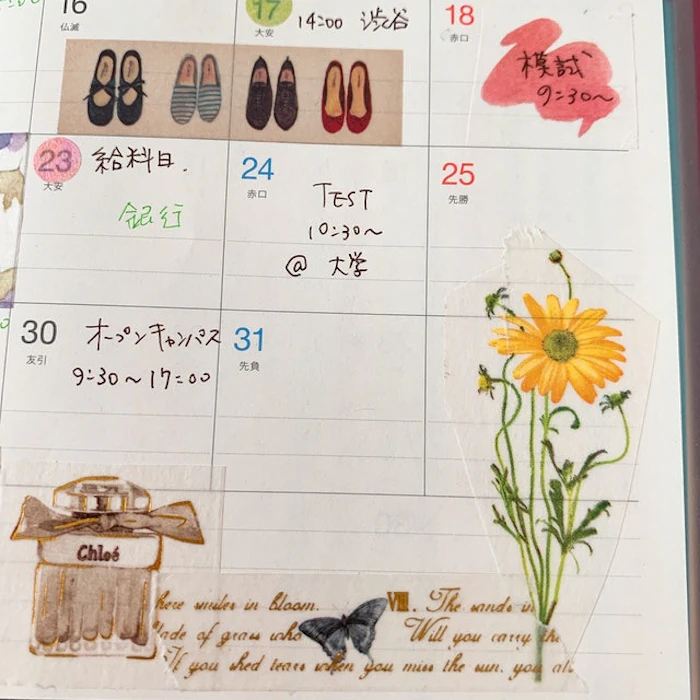 16
仏滅
17
大安
14:00 渋谷
18
赤口
模試
9:30〜
23
大安
給料日.
銀行
24
赤口
TEST
10:30〜
@ 大学
25
先勝
30
友引
オープンキャンパス
9:30〜17:00
31
先負
Chloé
here smiles in bloom.
lade of grass who
If you shed tears when you miss the sun, you al
VIII. The sands in
Will you carry the